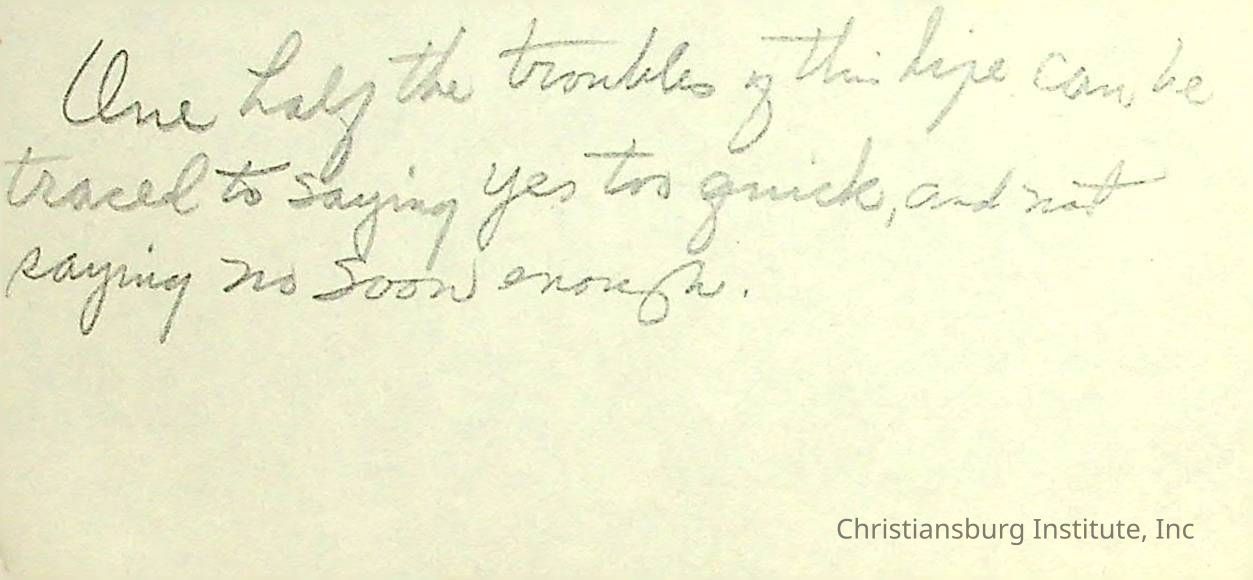 One half the troubles of this life can be
traced to saying yes too quick, and not
saying no soon enough.
Christiansburg Institute, Inc